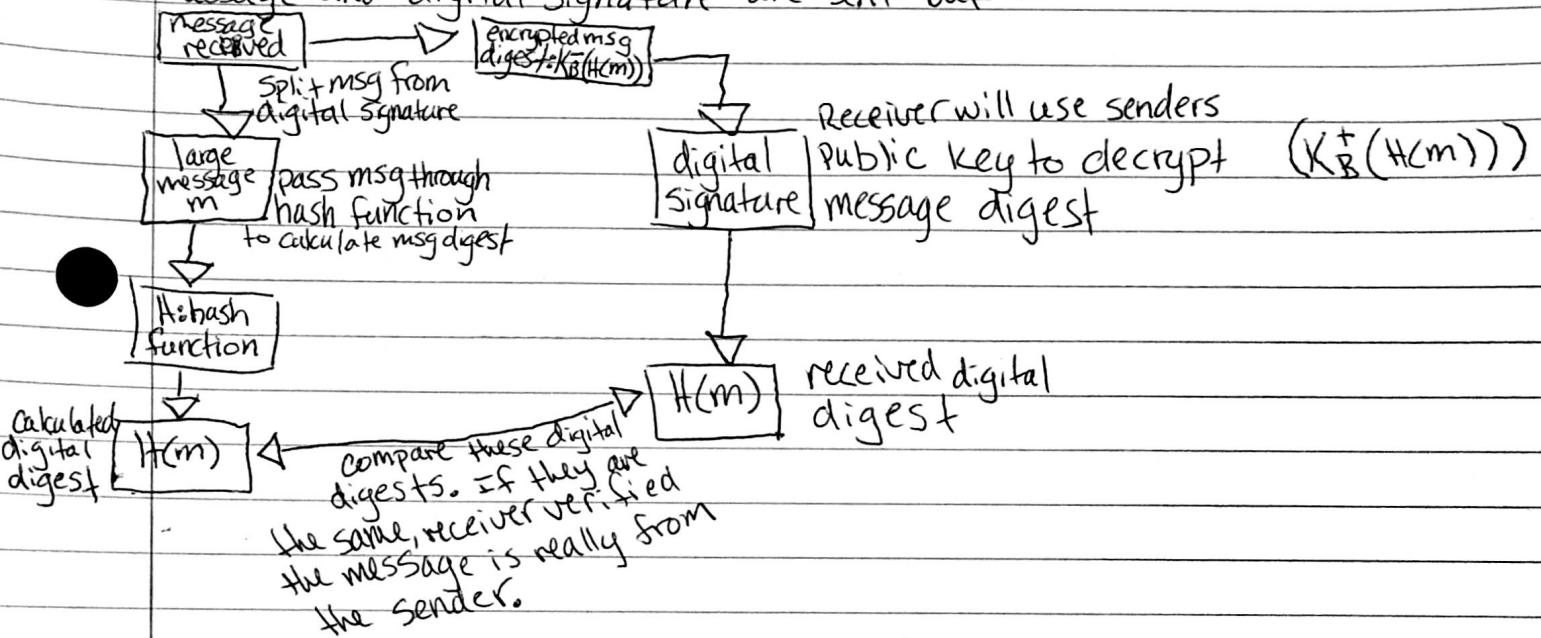 and digital signature are sent out
message
received
encrypted msg
digest: K⁻B(H(m))
Split msg from
digital signature
large
message
m
pass msg through
hash function
to calculate msg digest
digital
signature
Receiver will use senders
public key to decrypt
message digest
(K⁺B(H(m)))
H: hash
function
calculated
digital
digest
H(m)
H(m)
received digital
digest
compare these digital
digests. If they are
the same, receiver verified
the message is really from
the sender.